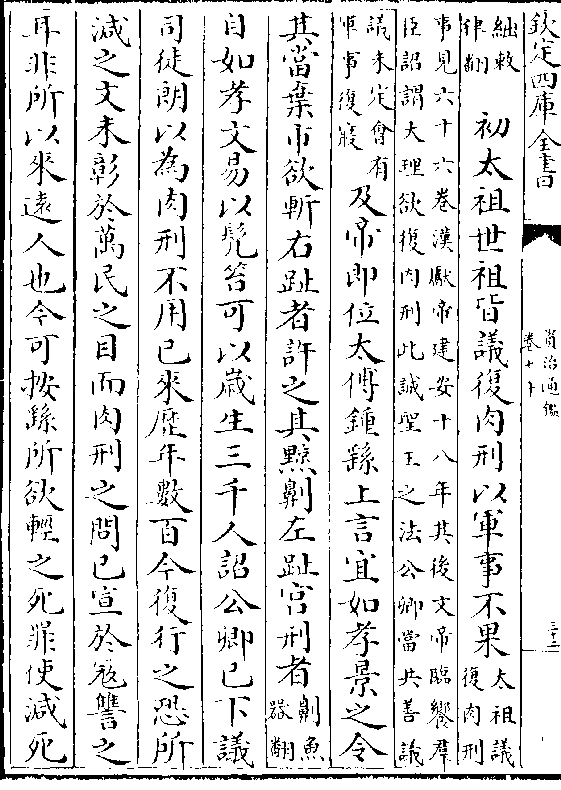 欽定四庫全書
資治通鑑
卷七十
三十二
絀敕律翻
初太祖世祖皆議復肉刑以軍事不果太祖議復肉刑
事見六十六卷漢獻帝建安十八年其後文帝臨饗羣
臣詔謂大理欲復肉刑此誠聖王之法公卿當共善議
議未定會有軍事復寢
及帝即位太傅鍾繇上言宜如孝景之令
其當棄市欲斬右趾者許之其黥劓左趾宫刑者劓魚器翻
自如孝文易以髠笞可以嵗生三千人詔公卿已下議
司徒朗以為肉刑不用已來歴年數百今復行之恐所
減之文未彰於萬民之目而肉刑之問已宣於宼讐之
耳非所以來遠人也今可按繇所欲輕之死罪使減死